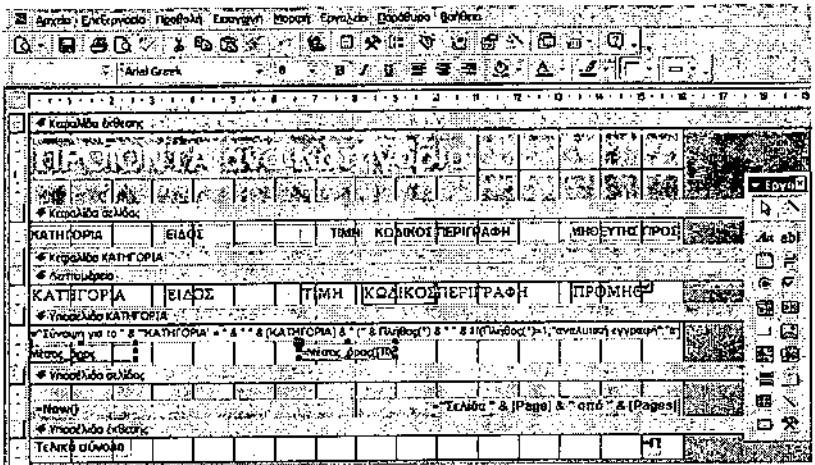 Αρχείο Επεξεργασία Προβολή Εισαγωγή Μορφή Εργαλεία Παράθυρο Βοήθεια
Arial Greek 8 B I U
Κεφαλίδα έκθεσης
ΠΡΟΪΟΝΤΑ ανά κατηγορία
Κεφαλίδα σελίδας
ΚΑΤΗΓΟΡΙΑ ΕΙΔΟΣ ΤΙΜΗ ΚΩΔΙΚΟΣ ΠΕΡΙΓΡΑΦΗ
Κεφαλίδα ΚΑΤΗΓΟΡΙΑ
Λεπτομέρεια
ΚΑΤΗΓΟΡΙΑ ΕΙΔΟΣ ΤΙΜΗ ΚΩΔΙΚΟΣ ΠΕΡΙΓΡΑΦΗ ΠΡΟΜΗΘ
Υποσέλιδο ΚΑΤΗΓΟΡΙΑ
="Σύνοψη για το " & "'ΚΑΤΗΓΟΡΙΑ' = " & " " & [ΚΑΤΗΓΟΡΙΑ] & " (" & Πλήθος(*) & " " & IIf(Πλήθος(*)=1;"αναλυτική εγγραφή";"α
Μέσος όρος =Μέσος_όρος([ΤΙΜ
Υποσέλιδο σελίδας
=Now() ="Σελίδα " & [Page] & " από " & [Pages]
Υποσέλιδο έκθεσης
Τελικό σύνολο
Εργα
Aa ab|